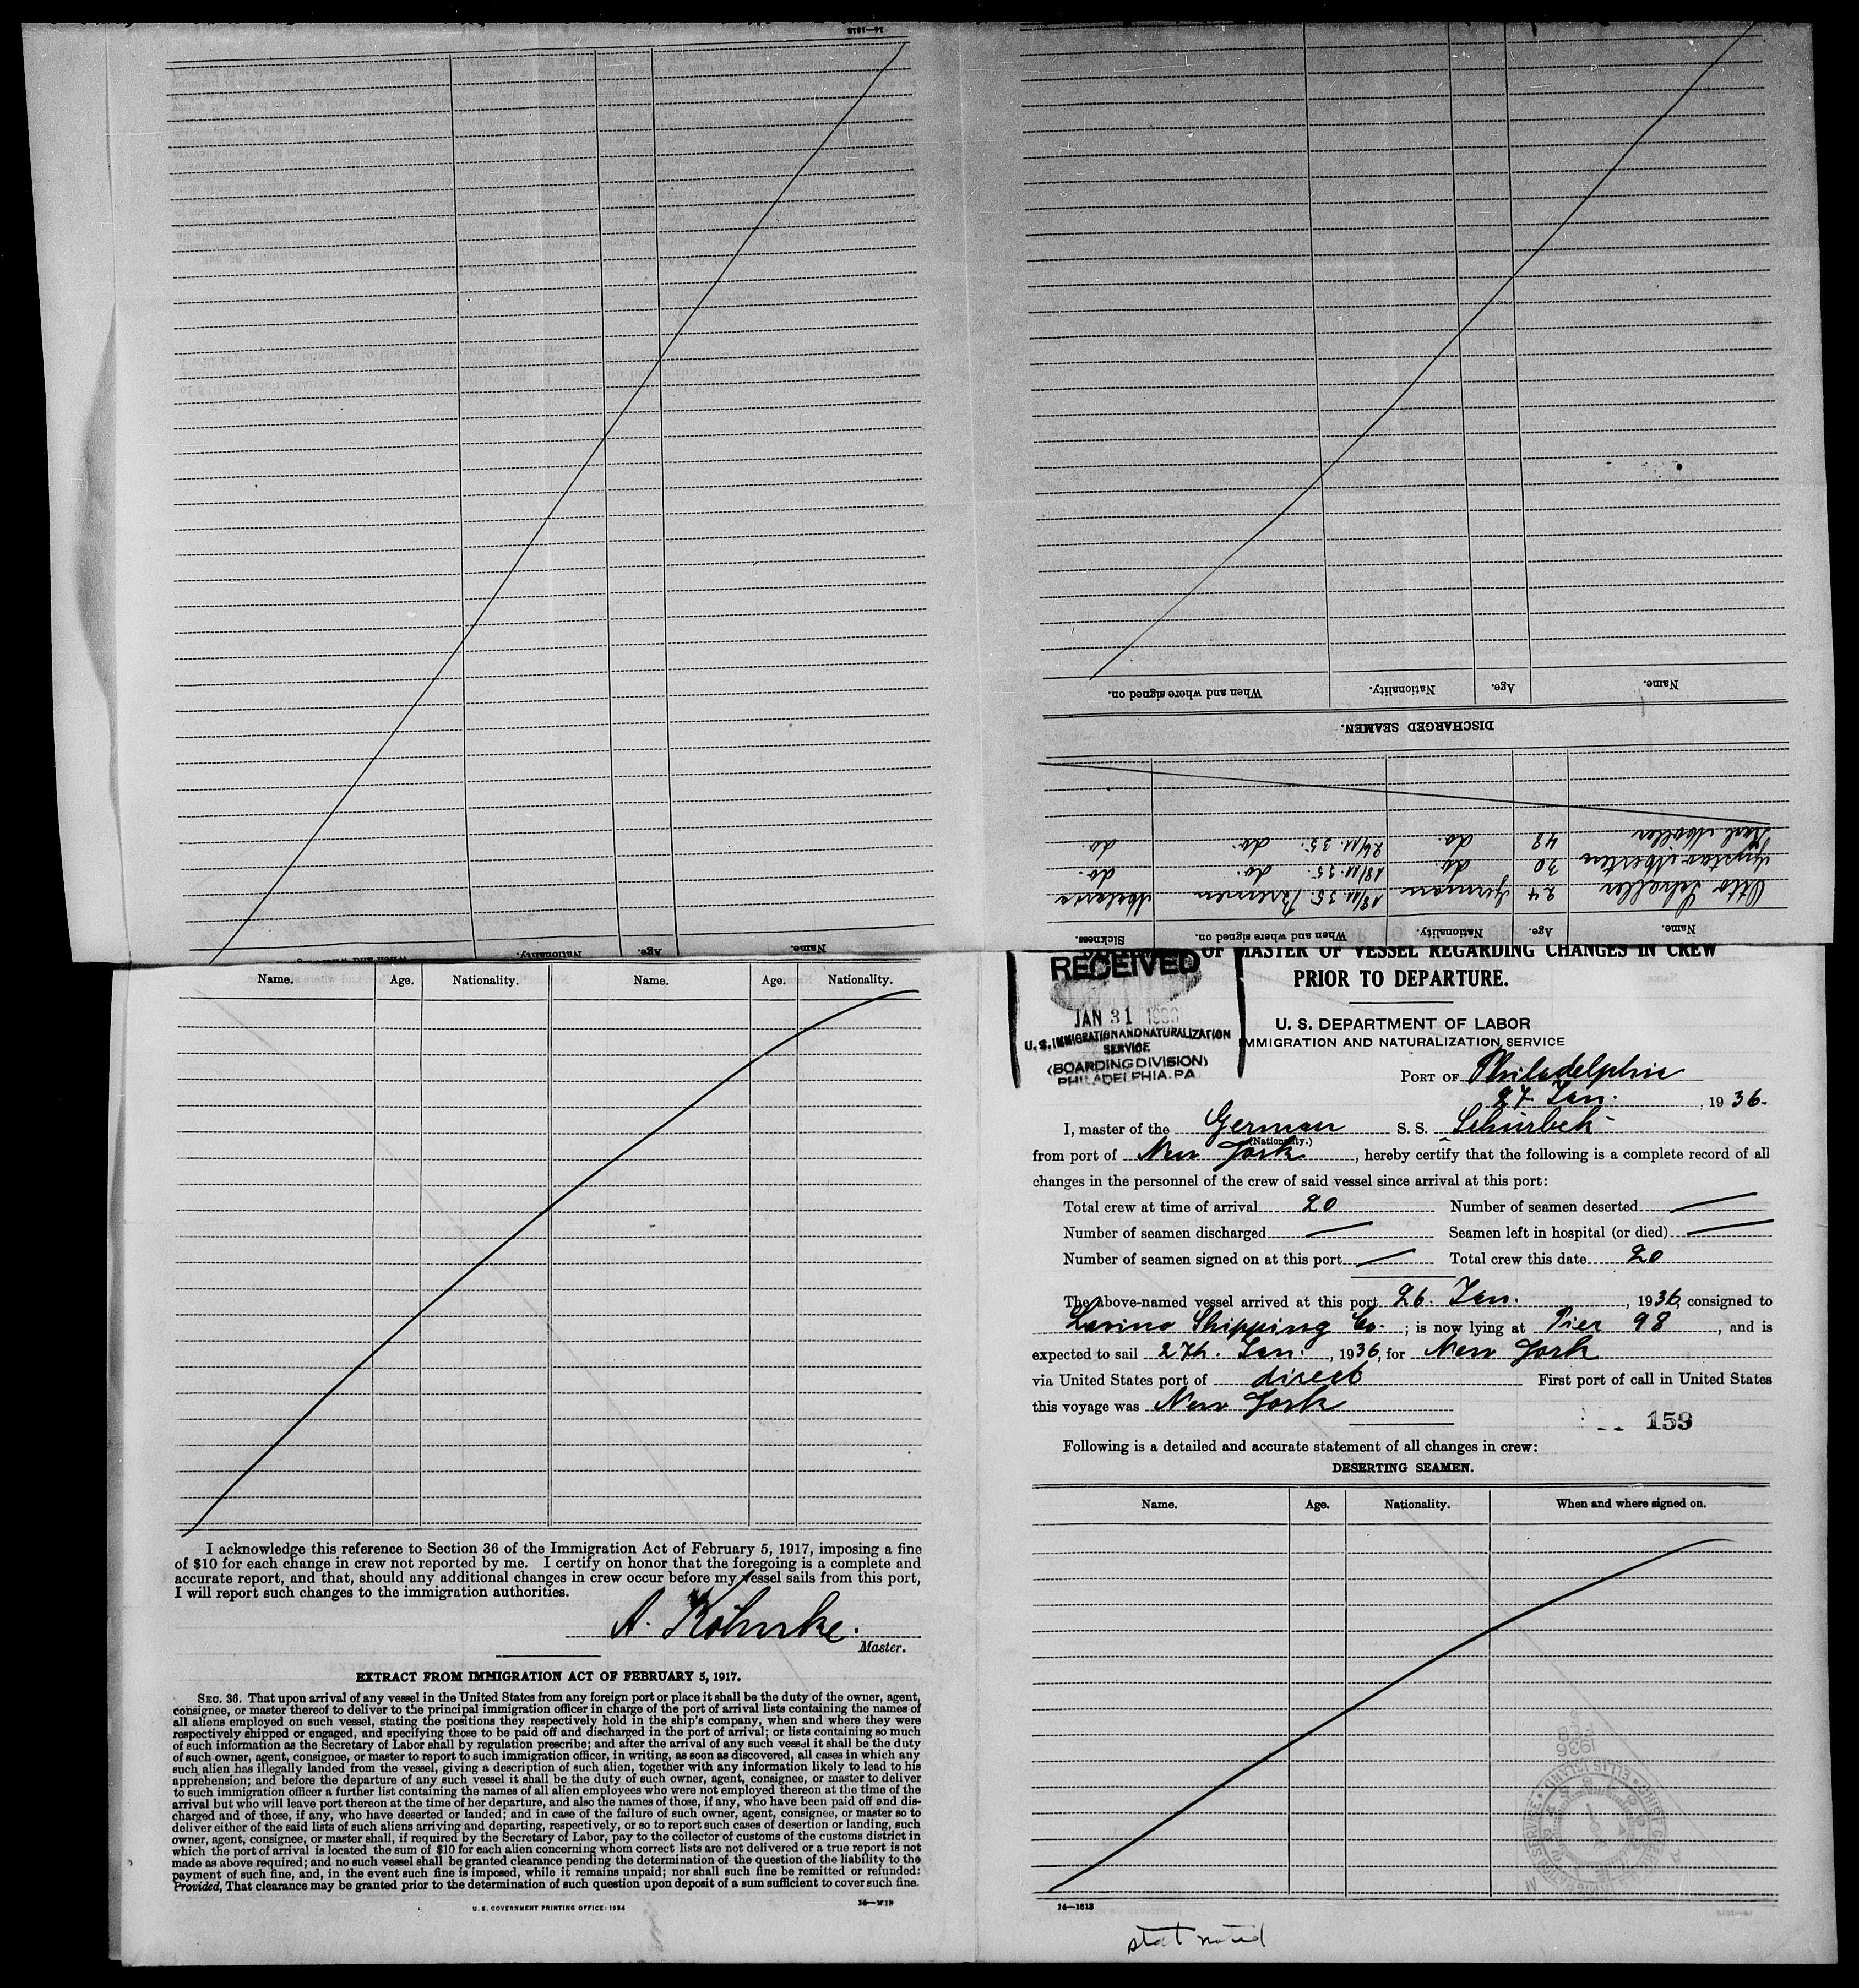 16—1613
When and where signed on.
Nationality.
Age.
Name.
DISCHARGED SEAMEN.
Karl Möller 48 do. 26/11. 35. do. do.
Gustav Mbertin 30 do. 18/11. 35. do. do.
Otto Schaller 24 German 18/11. 35. Bremen Malaria
Name. Age. Nationality. When and where signed on. Sickness.
Name. Age. Nationality.
Name. Age. Nationality. Name. Age. Nationality.
I acknowledge this reference to Section 36 of the Immigration Act of February 5, 1917, imposing a fine
of $10 for each change in crew not reported by me. I certify on honor that the foregoing is a complete and
accurate report, and that, should any additional changes in crew occur before my vessel sails from this port,
I will report such changes to the immigration authorities.
A. Köhnke.
Master.
EXTRACT FROM IMMIGRATION ACT OF FEBRUARY 5, 1917.
SEC. 36. That upon arrival of any vessel in the United States from any foreign port or place it shall be the duty of the owner, agent,
consignee, or master thereof to deliver to the principal immigration officer in charge of the port of arrival lists containing the names of
all aliens employed on such vessel, stating the positions they respectively hold in the ship's company, when and where they were
respectively shipped or engaged, and specifying those to be paid off and discharged in the port of arrival; or lists containing so much
of such information as the Secretary of Labor shall by regulation prescribe; and after the arrival of any such vessel it shall be the duty
of such owner, agent, consignee, or master to report to such immigration officer, in writing, as soon as discovered, all cases in which any
such alien has illegally landed from the vessel, giving a description of such alien, together with any information likely to lead to his
apprehension; and before the departure of any such vessel it shall be the duty of such owner, agent, consignee, or master to deliver
to such immigration officer a further list containing the names of all alien employees who were not employed thereon at the time of the
arrival but who will leave port thereon at the time of her departure, and also the names of those, if any, who have been paid off and dis-
charged and of those, if any, who have deserted or landed; and in case of the failure of such owner, agent, consignee, or master so to
deliver either of the said lists of such aliens arriving and departing, respectively, or so to report such cases of desertion or landing, such
owner, agent, consignee, or master shall, if required by the Secretary of Labor, pay to the collector of customs of the customs district in
which the port of arrival is located the sum of $10 for each alien concerning whom correct lists are not delivered or a true report is not
made as above required; and no such vessel shall be granted clearance pending the determination of the question of the liability to the
payment of such fine, and, in the event such fine is imposed, while it remains unpaid; nor shall such fine be remitted or refunded:
Provided, That clearance may be granted prior to the determination of such question upon deposit of a sum sufficient to cover such fine.
U. S. GOVERNMENT PRINTING OFFICE: 1934
OF MASTER OF VESSEL REGARDING CHANGES IN CREW
PRIOR TO DEPARTURE.
RECEIVED
JAN 31 1936
U. S. IMMIGRATION AND NATURALIZATION
SERVICE
(BOARDING DIVISION)
PHILADELPHIA, PA.
U. S. DEPARTMENT OF LABOR
IMMIGRATION AND NATURALIZATION SERVICE
PORT OF Philadelphia
27. Jan. , 1936.
I, master of the German S. S. Schürbek
(Nationality.)
from port of New York , hereby certify that the following is a complete record of all
changes in the personnel of the crew of said vessel since arrival at this port:
Total crew at time of arrival 20 Number of seamen deserted
Number of seamen discharged Seamen left in hospital (or died)
Number of seamen signed on at this port Total crew this date 20
The above-named vessel arrived at this port 26. Jan. , 1936, consigned to
Lavino Shipping Co. ; is now lying at Pier 98 , and is
expected to sail 27th. Jan. , 1936, for New York
via United States port of direct First port of call in United States
this voyage was New York
159
Following is a detailed and accurate statement of all changes in crew:
DESERTING SEAMEN.
Name. Age. Nationality. When and where signed on.
1936
FEB
ELLIS ISLAND
14—1613
stat noted